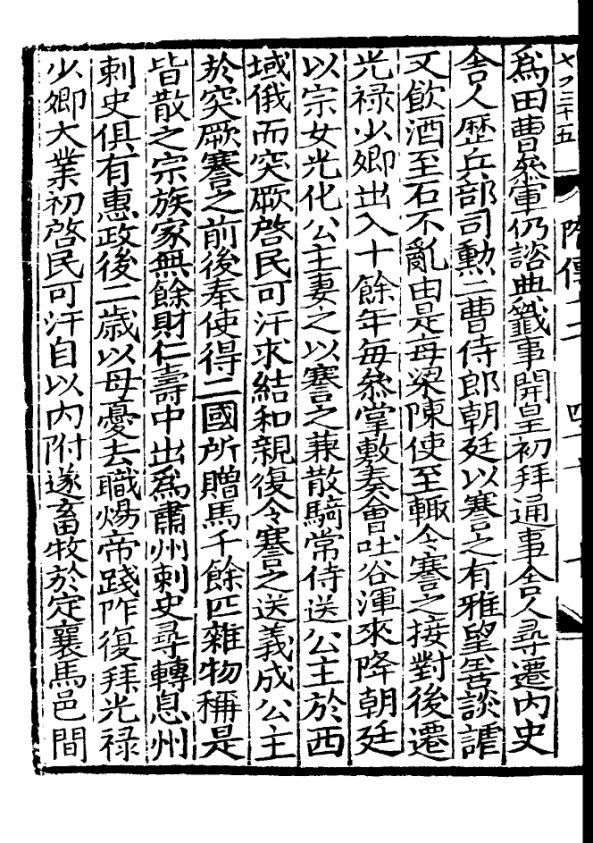 隋傳十二
爲田曹叅軍仍諮典籤事開皇初拜通事舍人尋遷內史
舍人歷兵部司勳二曹侍郎朝廷以謇之有雅望善談謔
又飲酒至石不亂由是每梁陳使至輙令謇之接對後遷
光禄少卿出入十餘年每叅掌敷奏會吐谷渾來降朝廷
以宗女光化公主妻之以謇之兼散騎常侍送公主於西
域俄而突厥啓民可汗求結和親復令謇之送義成公主
於突厥謇之前後奉使得二國所贈馬千餘匹雜物稱是
皆散之宗族家無餘財仁壽中出爲肅州刺史尋轉息州
刺史俱有惠政後二歲以母憂去職煬帝踐阼復拜光禄
少卿大業初啓民可汗自以內附遂畜牧於定襄馬邑間